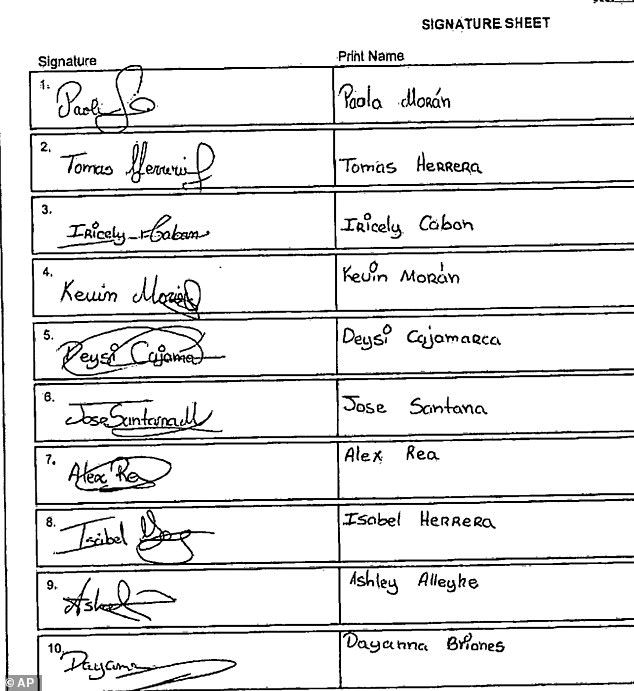 SIGNATURE SHEET
Signature Print Name
1. Paola Morán
2. Tomas Herrera Tomas HERRERA
3. IRicely Caban IRicely Caban
4. Kevin Kevin MORán
5. Deysi Cajama Deysi CajamaRca
6. Jose Santana Jose Santana
7. Alex Rea Alex Rea
8. Isabel Isabel HERRERA
9. Ashley
10. Dayanna Dayanna BRiones
© AP